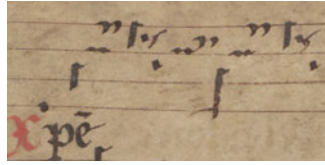 Xpē